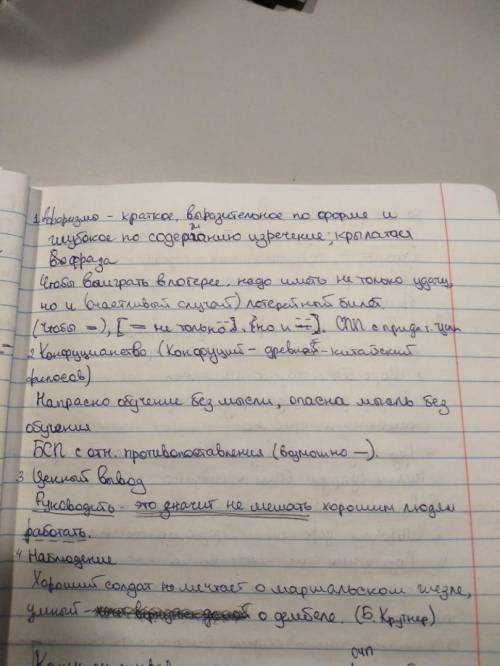 1. Афоризмо - краткое, выразительное по форме и
глубокое по содержанию изречение; крылатая
фраза
Чтобы выиграть в лотерее, надо иметь не только удачу,
но и (счастливый случай) лотерейный билет.
(Чтобы =), [= не только], [но и]. СПП с придат. цели
2. Конфуцианство. (Конфуций - древней-китайский
философ)
Напрасно обучение без мысли, опасна мысль без
обучения
БСП с отн. противопоставления (возможно —).
3 Ценный вывод
Руководить - это значит не мешать хорошим людям
работать.
4. Наблюдение
Хороший солдат не мечтает о маршальском жезле,
умный - о дембеле. (Б. Крутиер)